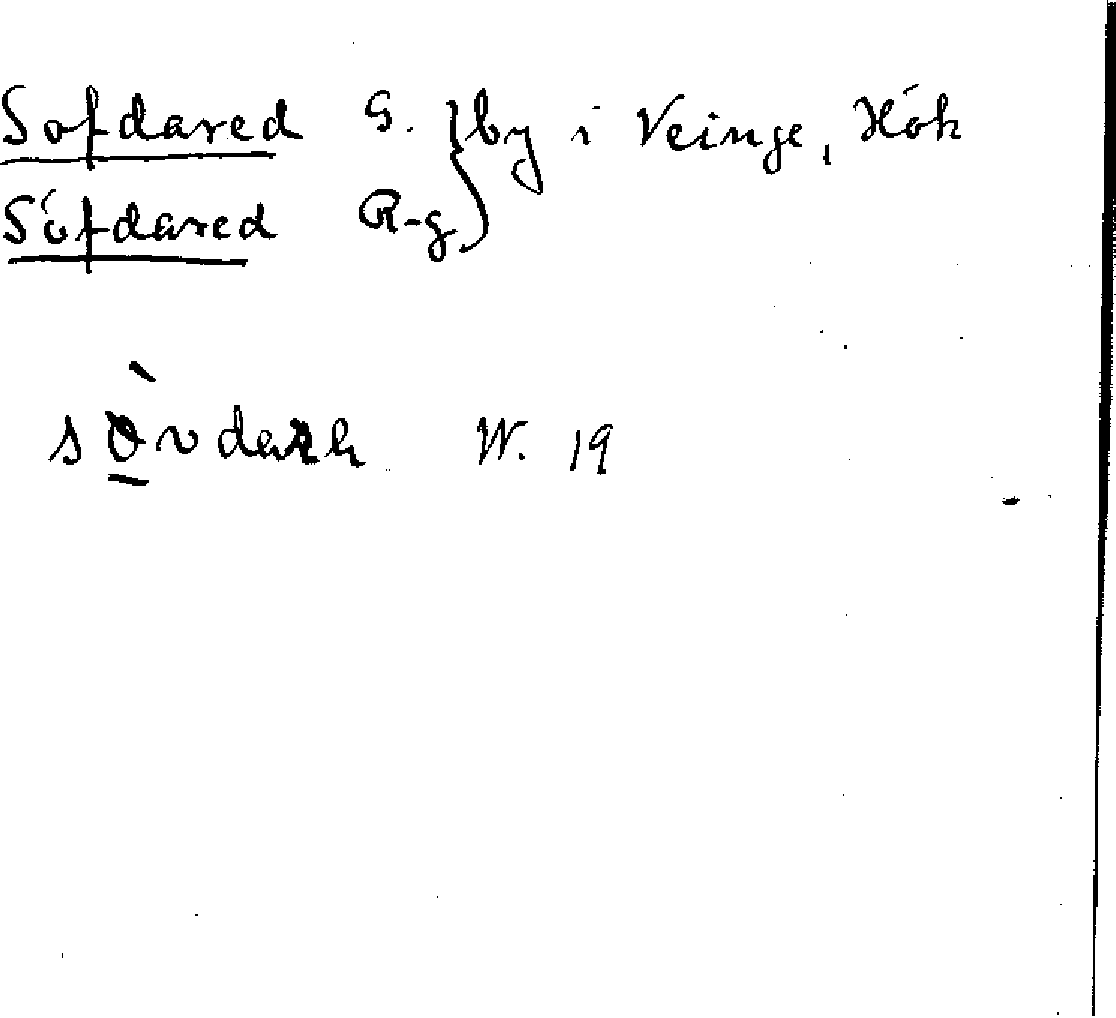 Sofdared G. } by i Veinge, Hök
Söfdared R-g
sòvdarh W. 19